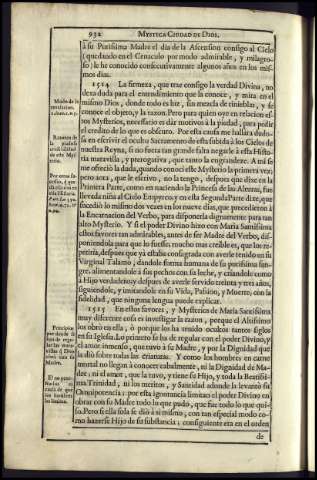 932 MYSTICA CIUDAD DE DIOS.
à su Purissima Madre el dia de la Ascension consigo al Cielo
(quedando en el Cenaculo por modo admirable, y milagro-
so) le he conocido consecutivamente algunos años en los mis-
mos dias.
1514 La firmeza, que trae consigo la verdad Divina, no
dexa duda para el entendimiento que la conoce, y mira en el
mismo Dios, donde todo es luz, sin mezcla de tinieblas, y se
conoce el objeto, y la razon. Pero para quien oye en relacion es-
tos Mysterios, necessario es dàr motivos à la piedad, para pedir
el credito de lo que es obscuro. Por esta causa me hallàra dudo-
sa en escrivir el oculto Sacramento de esta subida à los Cielos de
nuestra Reyna, si no fuera tan grande falta negarle à esta Histo-
ria maravilla, y prerogativa, que tanto la engrandece. A mi se
me ofreciò la duda, quando conocì este Mysterio la primera vez;
pero aora, que le escrivo, no la tengo, despues que dixe en la
Primera Parte, como en naciendo la Princesa de las Alturas, fue
llevada niña al Cielo Empyreo; y en esta Segunda Parte dixe, que
sucediò lo mismo dos veces en los nueve dias, que precedieron à
la Encarnacion del Verbo, para disponerla dignamente para tan
alto Mysterio. Y si el poder Divino hizo con Maria Santissima
estos favores tan admirables, antes de ser Madre del Verbo, dis-
poniendola para que lo fuesse; mucho mas creible es, que los re-
petiria, despues que yà estaba consagrada con averle tenido en su
Virginal Talamo, dandole forma humana de su purissima san-
gre, alimentandole à sus pechos con su leche, y criandole como
à Hijo verdadero; y despues de averle servido treinta y tres años,
siguiendole, y imitandole en su Vida, Passion, y Muerte, con la
fidelidad, que ninguna lengua puede explicar.
1515 En estos favores, y Mysterios de Maria Santissima
muy diferente cosa es investigar la razon, porque el Altissimo
los obrò en ella, ò porque los ha tenido ocultos tantos siglos
en su Iglesia. Lo primero se ha de regular con el poder Divino, y
el amor inmenso, que tuvo à su Madre, y por la Dignidad que
la diò sobre todas las criaturas. Y como los hombres en carne
mortal no llegan à conocer cabalmente, ni la Dignidad de Ma-
dre, ni el amor, que la tuvo, y tiene su Hijo, y toda la Beatissi-
ma Trinidad, ni los meritos, y Santidad adonde la levantò su
Omnipotencia: por esta ignorancia limitan el poder Divino en
obrar con su Madre todo lo que pudo, que fue todo lo que qui-
so. Pero si ella sola se diò à sì mismo, con tan especial modo co-
mo hazerse Hijo de su substancia; consiguiente era en el orden
de